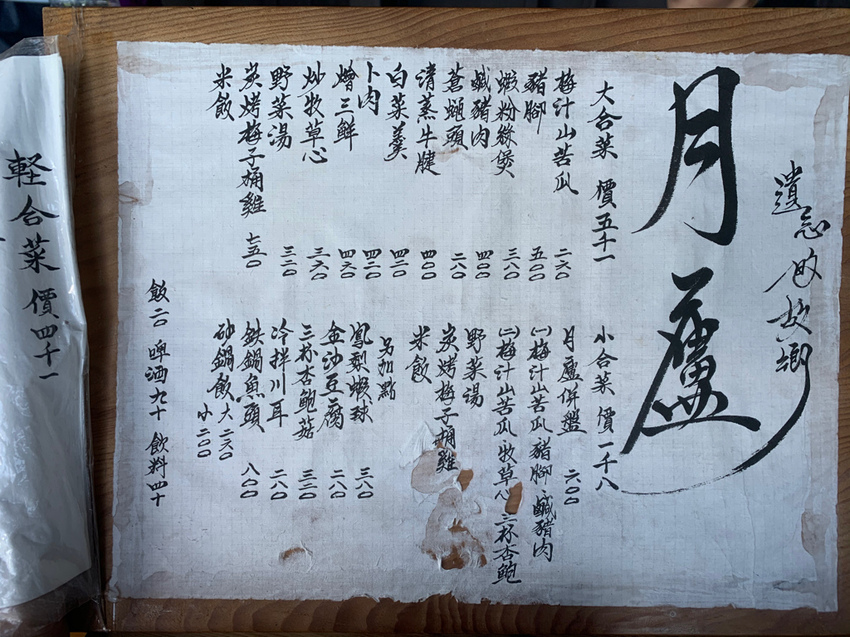 遺忘的故鄉
月廬
大合菜 價五千一
梅汁山苦瓜 二六〇
豬腳 五〇〇
蝦粉絲煲 三八〇
鹹豬肉 四〇〇
蒼蠅頭 二八〇
清蒸牛腱 四〇〇
白菜羹 四二〇
卜肉 四二〇
燴三鮮 四六〇
炒牧草心 三六〇
野菜湯 三二〇
炭烤梅子桶雞 七五〇
米飯
小合菜 價一千八
月廬併盤 六〇〇
(一)梅汁山苦瓜 豬腳 鹹豬肉
(二)梅汁山苦瓜 牧草心 三杯杏鮑
野菜湯
炭烤梅子桶雞
米飯
另加點
鳳梨蝦球 三八〇
金沙豆腐 二八〇
三杯杏鮑菇 三二〇
冷拌川耳 二八〇
鐵鍋魚頭 八〇〇
砂鍋飯 大二六〇
小二〇〇
飯二〇 啤酒九十 飲料四十
軽合菜 價四千一